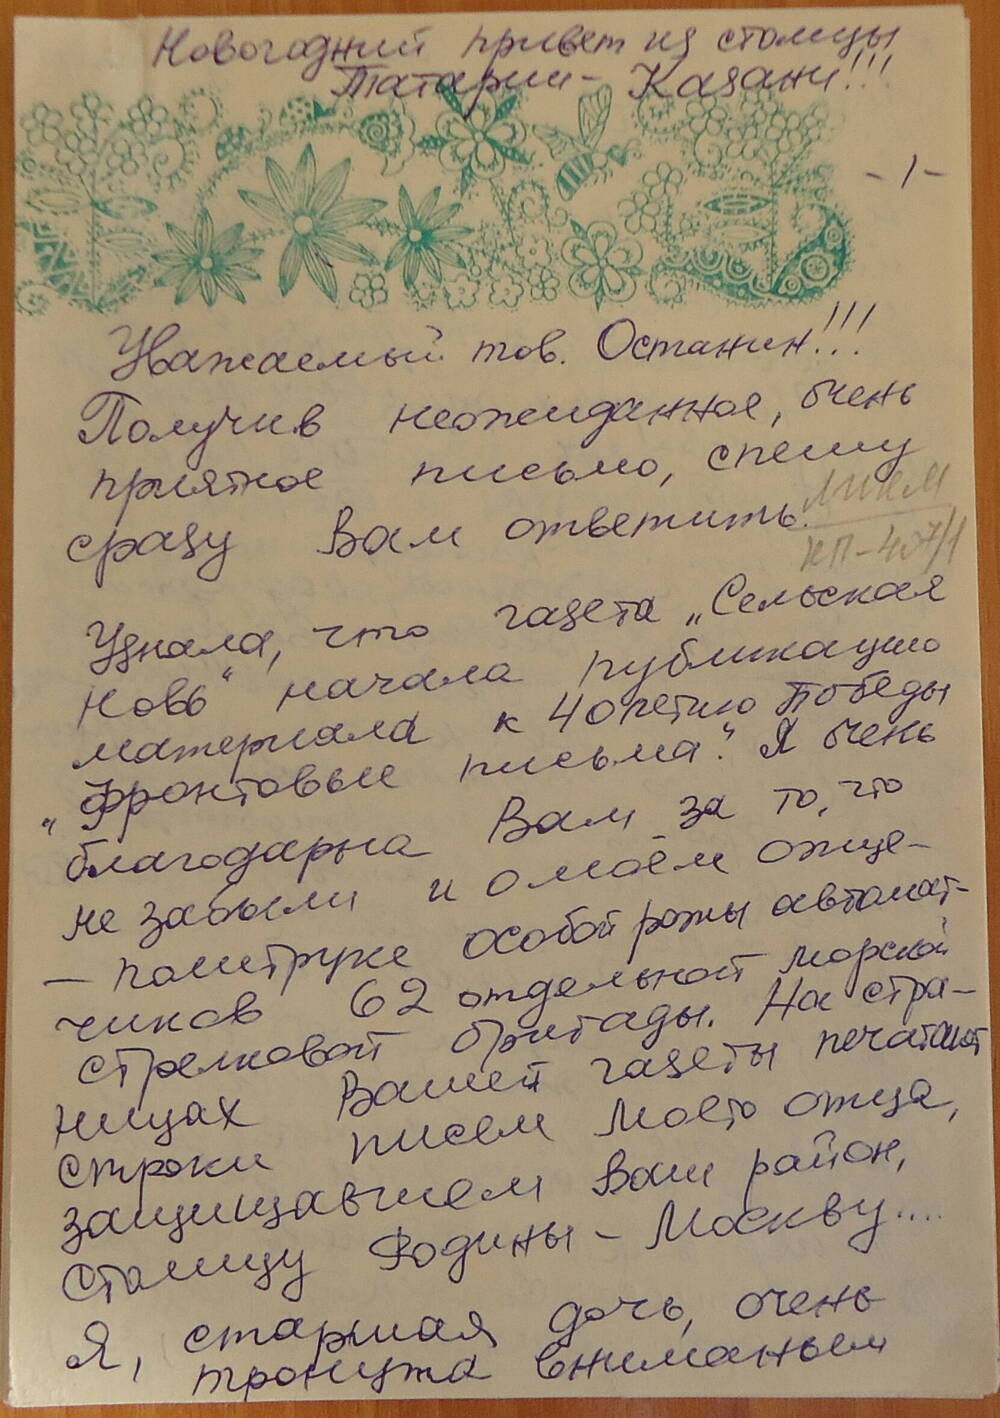 Новогодний привет из столицы
Татарии - Казани!!!
- 1 -
Уважаемый тов. Останин!!!
Получив неожиданное, очень
приятное письмо, спешу
сразу Вам ответить.
КП-407/1
Узнала, что газета „Сельская
новь" начала публикацию
материала к 40летию Победы
„Фронтовые письма". Я очень
благодарна Вам за то, что
не забыли и о моём отце-
- политруке особой роты автомат-
чиков 62 отдельной морской
стрелковой бригады. На стра-
ницах Вашей газеты печатают
строки писем моего отца,
защищавшем Ваш район,
столицу Родины - Москву....
Я, старшая дочь, очень
тронута вниманьем